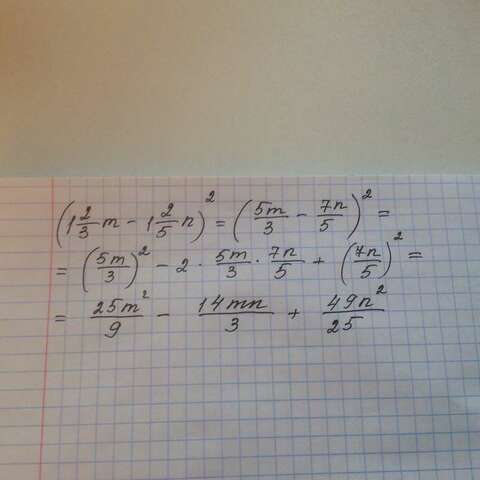 (1 2/3 m - 1 2/5 n)² = (5m/3 - 7n/5)² =
= (5m/3)² - 2 · 5m/3 · 7n/5 + (7n/5)² =
= 25m²/9 - 14mn/3 + 49n²/25